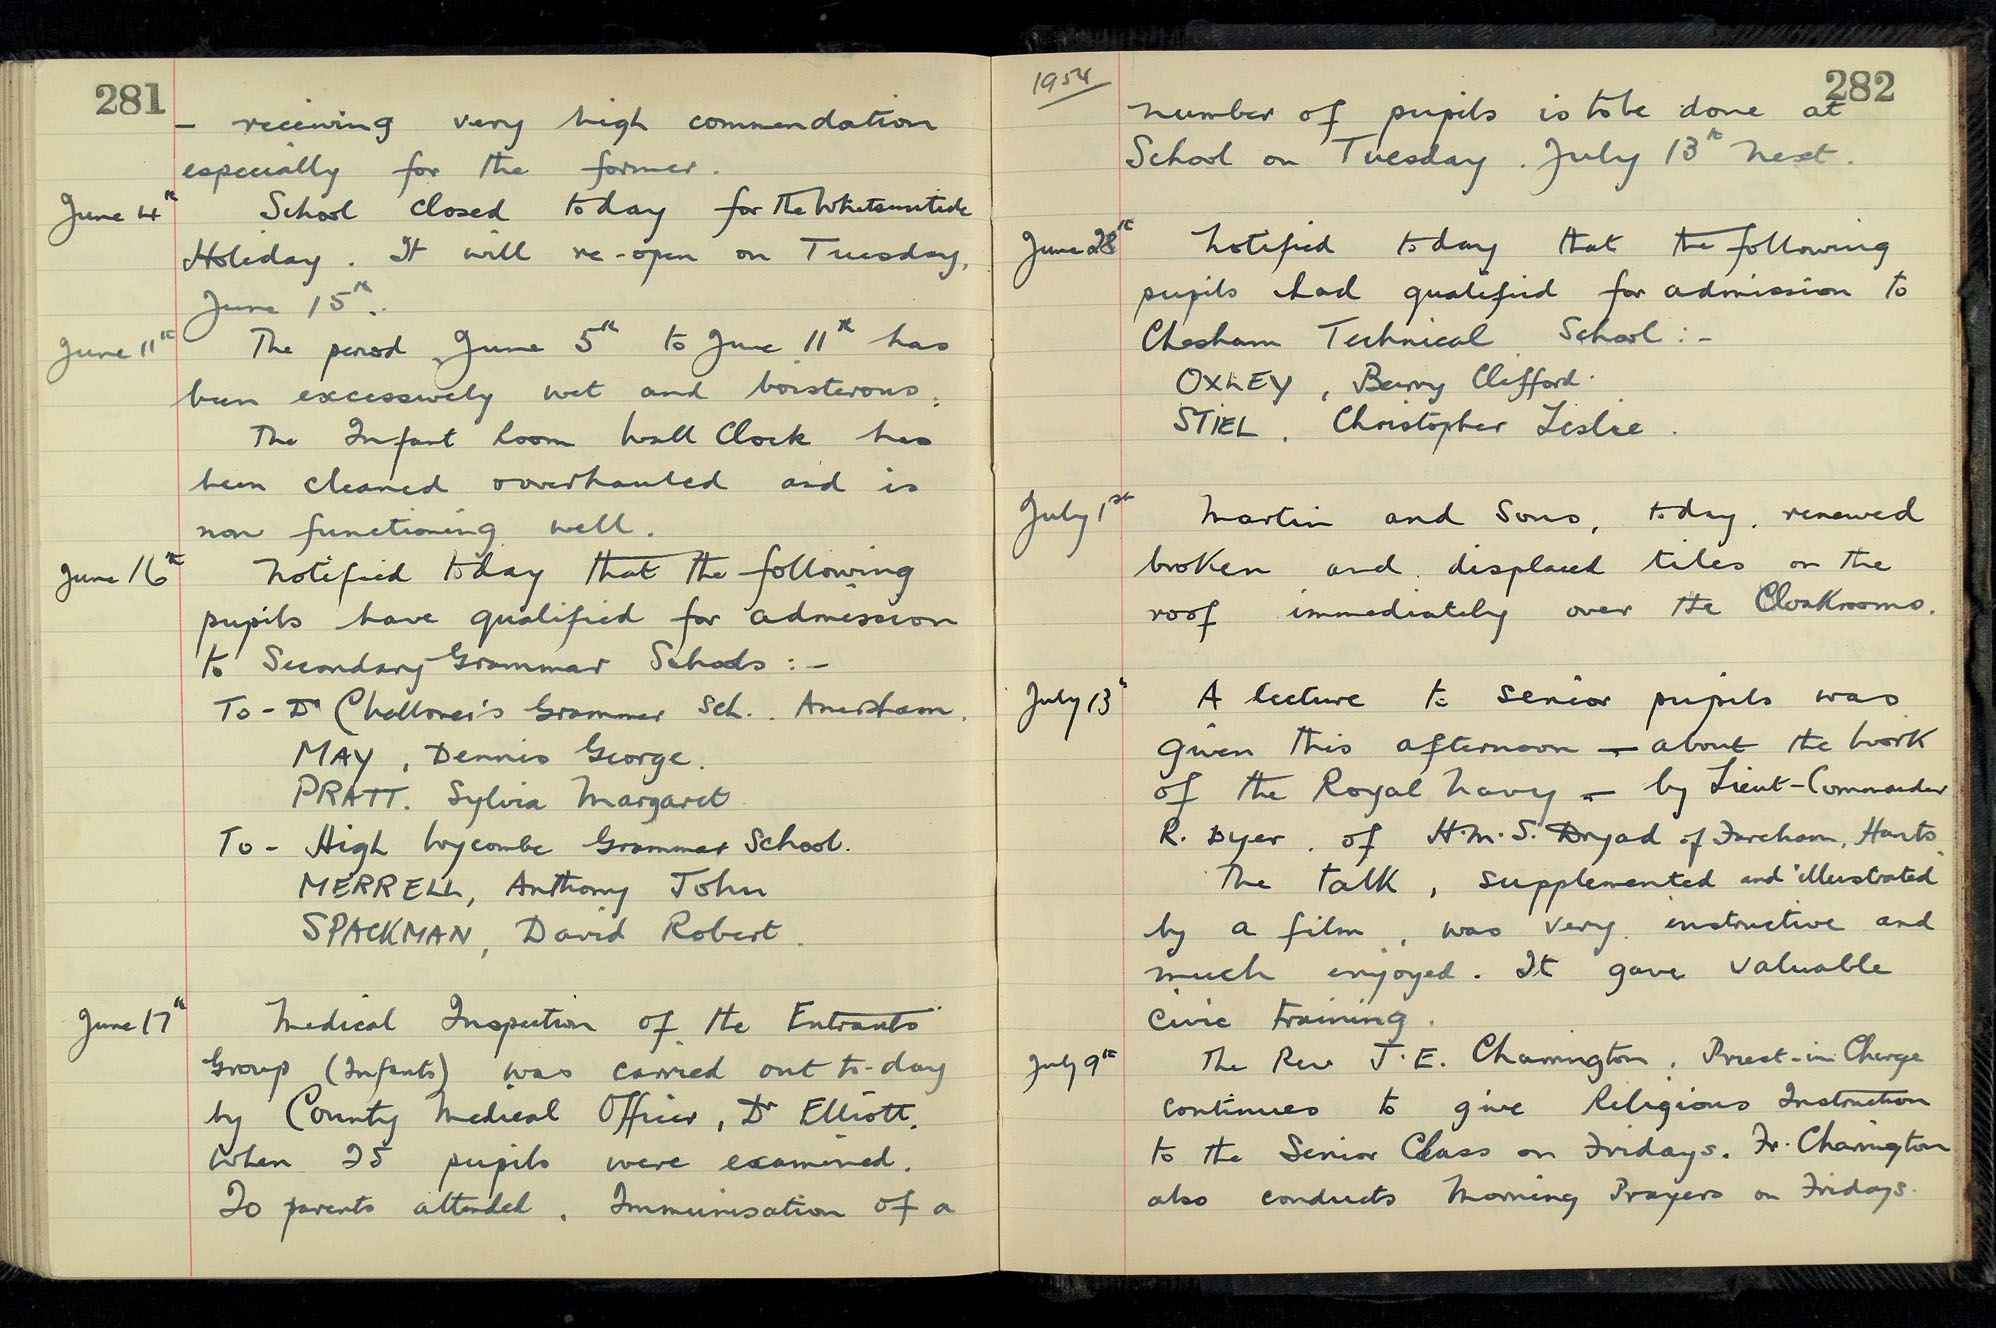 281
- receiving very high commendation
especially for the former.
June 4th School closed today for the Whitsuntide
Holiday. It will re-open on Tuesday,
June 15th.
June 11th The period June 5th to June 11th has
been excessively wet and boisterous.
The Infant Room Wall Clock has
been cleaned overhauled and is
now functioning well.
June 16th Notified today that the following
pupils have qualified for admission
to Secondary Grammar Schools :-
To - Dr Challoner's Grammar Sch. Amersham.
MAY, Dennis George.
PRATT. Sylvia Margaret
To - High Wycombe Grammar School.
MERRELL, Anthony John
SPACKMAN, David Robert.
June 17th Medical Inspection of the Entrants
Group (Infants) was carried out to-day
by County Medical Officer, Dr Elliott,
When 25 pupils were examined.
20 parents attended. Immunisation of a
1954
282
number of pupils is to be done at
School on Tuesday. July 13th next.
June 28th Notified today that the following
pupils had qualified for admission to
Chesham Technical School :-
OXLEY, Barry Clifford.
STIEL, Christopher Leslie.
July 1st Martin and Sons, today, renewed
broken and displaced tiles on the
roof immediately over the Cloakrooms.
July 13th A lecture to senior pupils was
given this afternoon - about the work
of the Royal Navy - by Lieut-Commander
R. Dyer, of H.M.S. Dryad of Fareham, Hants.
The talk, supplemented and illustrated
by a film, was very instructive and
much enjoyed. It gave valuable
civic training.
July 9th The Rev J. E. Charrington, Priest-in-Charge
continues to give Religious Instruction
to the Senior Class on Fridays. Fr. Charrington
also conducts Morning Prayers on Fridays.